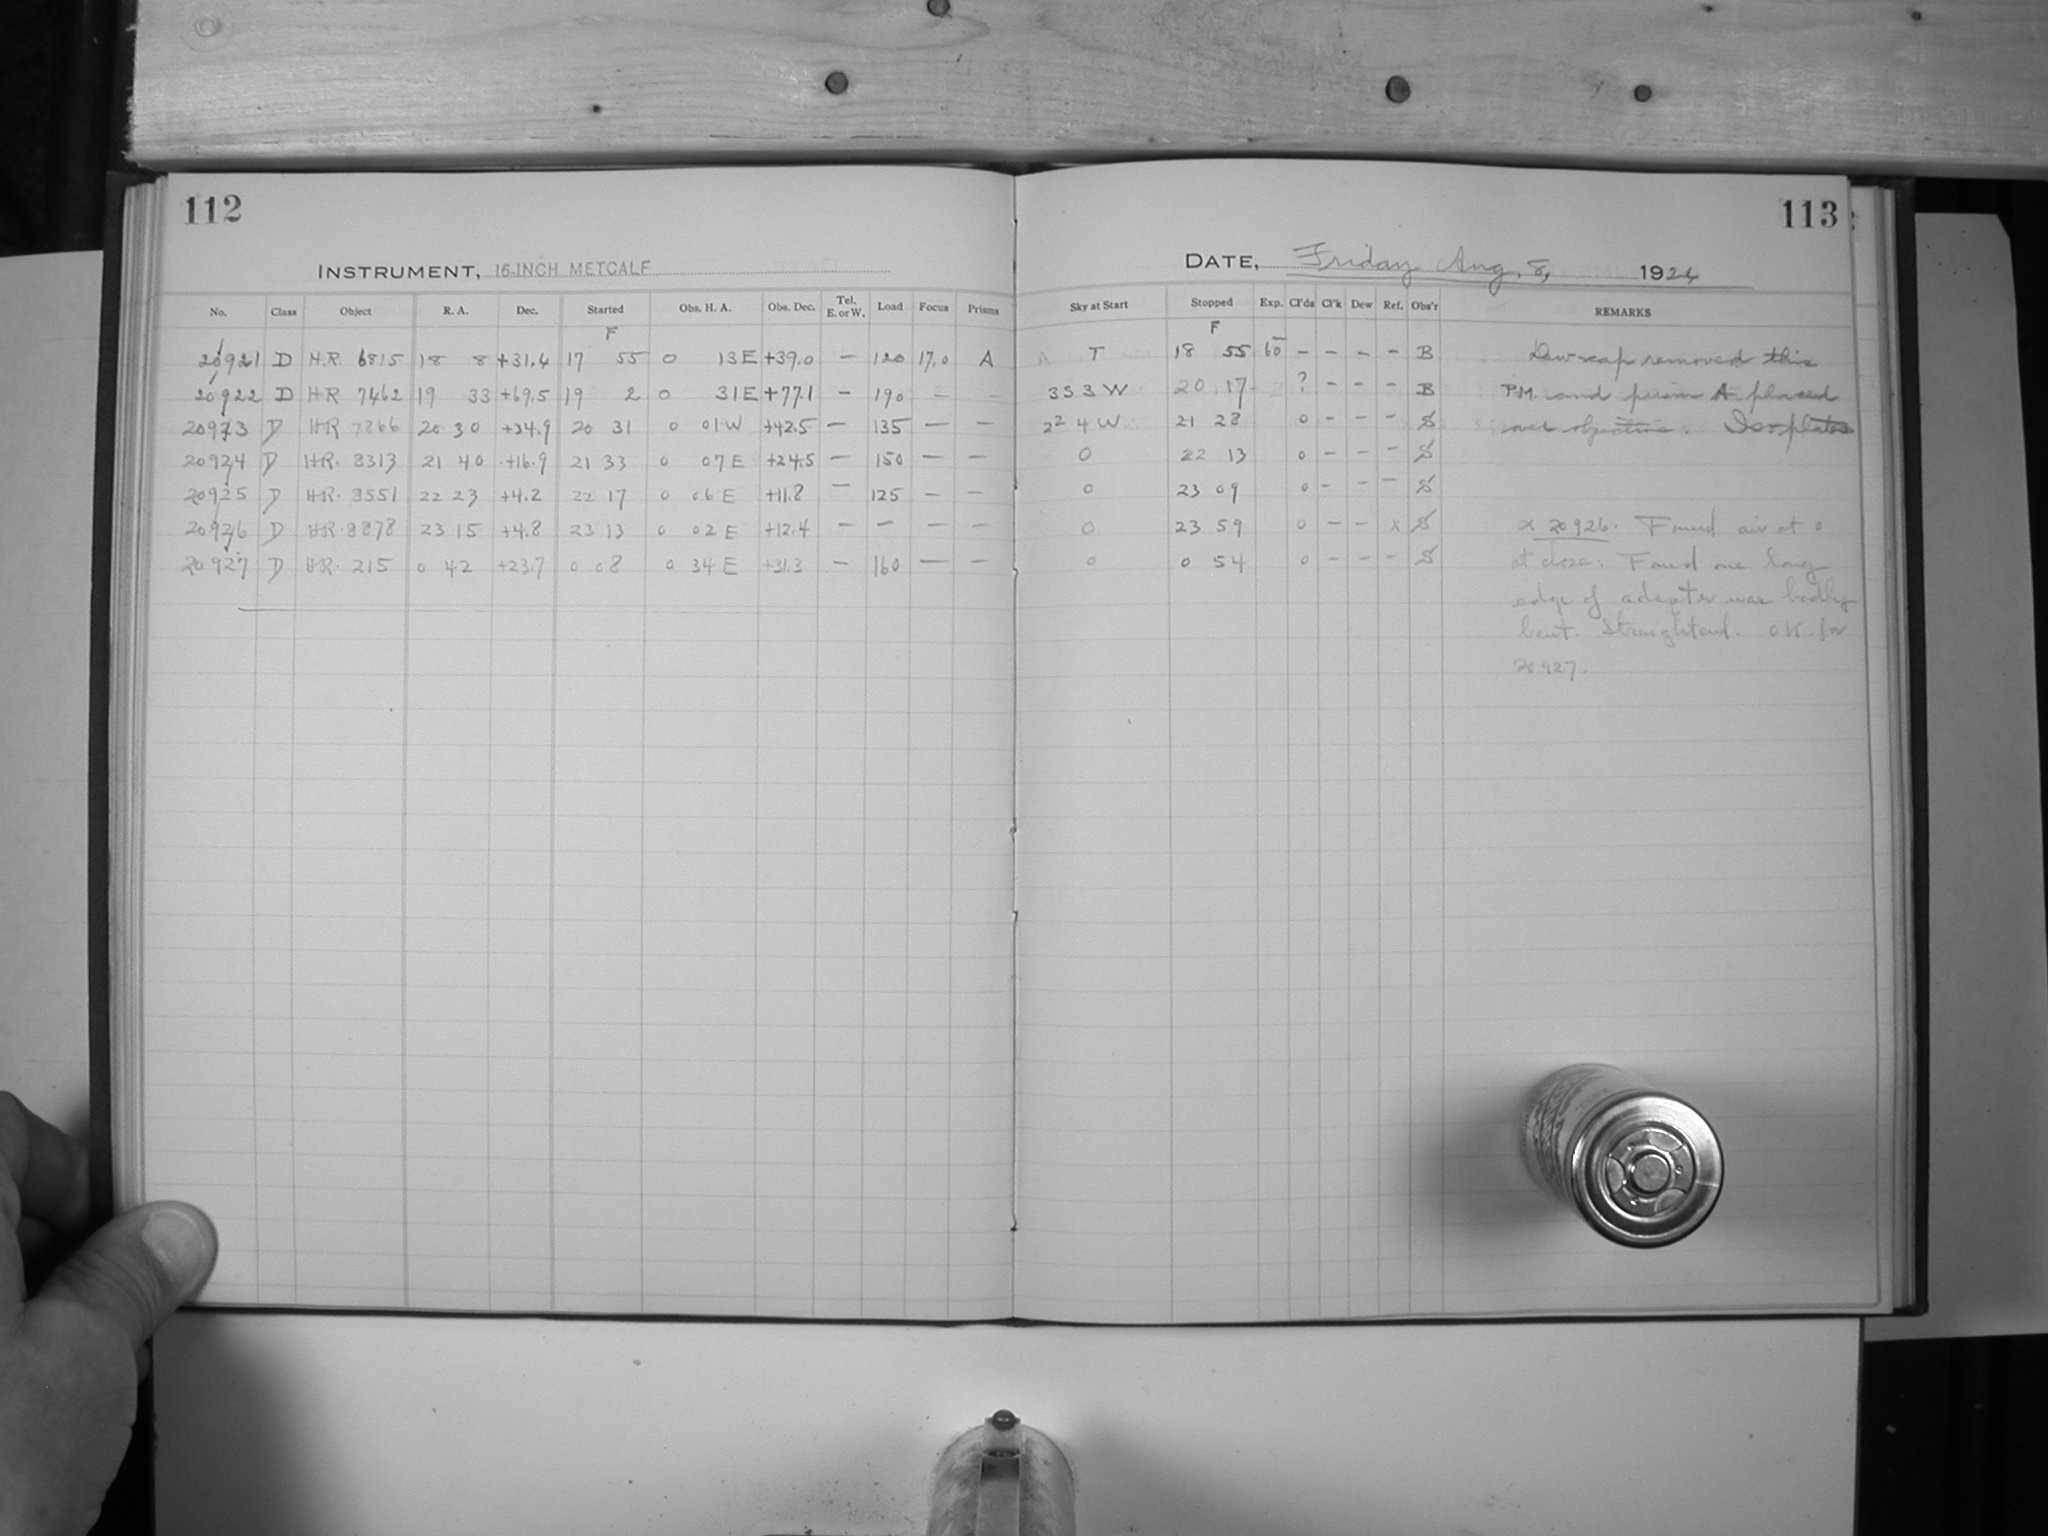 112
INSTRUMENT, 16-INCH METCALF
No. Class Object R. A. Dec. Started Obs. H. A. Obs. Dec. Tel. E. or W. Load Focus Prisms
F
20921 D H.R. 6815 18 8 +31.4 17 55 0 13 E +39.0 – 120 17.0 A
20922 D HR 7462 19 33 +69.5 19 2 0 31 E +77.1 – 190 – –
20923 D HR 7866 20 30 +34.9 20 31 0 01 W +42.5 – 135 – –
20924 D HR. 8313 21 40 +16.9 21 33 0 07 E +24.5 – 150 – –
20925 D HR. 8551 22 23 +4.2 22 17 0 06 E +11.8 – 125 – –
20926 D HR. 8878 23 15 +4.8 23 13 0 02 E +12.4 – – – –
20927 D HR. 215 0 42 +23.7 0 08 0 34 E +31.3 – 160 – –
113
DATE, Friday Aug. 8, 1924
Sky at Start Stopped Exp. Cl'ds Cl'k Dew Ref. Obs'r REMARKS
F
T 18 55 60 – – – – B Dew-cap removed this
3 S 3 W 20 17 ? – – – B P.M. and prism A placed
22 4 W 21 28 0 – – – S over objective. Iso plates
0 22 13 0 – – – S
0 23 09 0 – – – S
0 23 59 0 – – x S x 20926. Found air at 0
0 0 54 0 – – – S at close. Found one long
edge of adapter was badly
bent. Straightened. OK. for
20927.